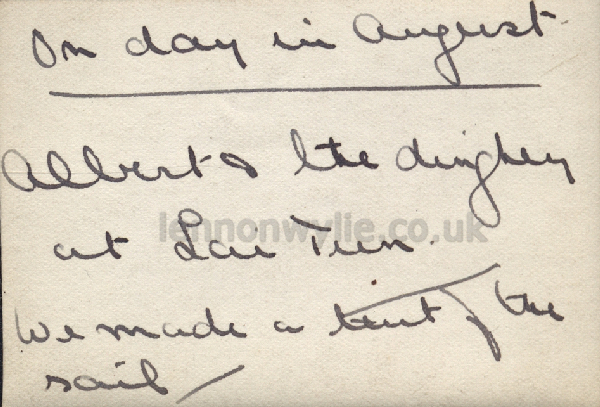 On day in August
Albert & the dinghey
at Lai Tun.
We made a tent of the
sail
lennonwylie.co.uk